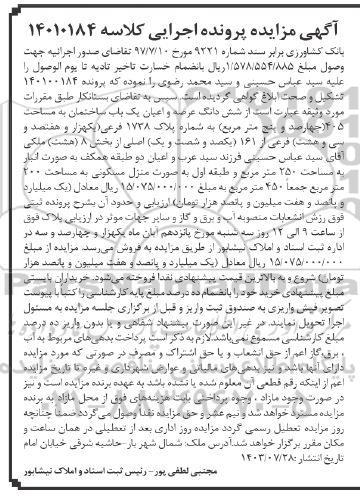 آگهی مزایده پرونده اجرایی کلاسه ۱۴۰۱۰۱۸۴
بانک کشاورزی برابر سند شماره ۹۲۲۱ مورخ ۹۷/۷/۱۰ تقاضای صدور اجرائیه جهت
وصول مبلغ ۱/۵۷۸/۵۵۴/۸۸۵ریال بانضمام خسارت تاخیر تادیه تا یوم الوصول را
علیه سید عباس حسینی و سید محمد رضوی را نموده که پرونده ۱۴۰۱۰۰۱۸۴
تشکیل و صحت ابلاغ گواهی گردیده است. سپس به تقاضای بستانکار طبق مقررات
مورد وثیقه عبارت است از شش دانگ عرصه و اعیان یک باب ساختمان به مساحت
۴۰۵(چهارصد و پنج متر مربع) به شماره پلاک ۱۷۳۸ فرعی(یکهزار و هفتصد و
سی و هشت) فرعی از ۱۶۱ (یکصد و شصت و یک) اصلی از بخش ۸ (هشت) ملکی
آقای سید عباس حسینی فرزند سید عرب و اعیان دو طبقه همکف به صورت انبار
به مساحت ۲۵۰ متر مربع و طبقه اول به صورت منزل مسکونی به مساحت ۲۰۰
متر مربع جمعاً ۴۵۰ متر مربع به مبلغ ۱۵/۰۷۵/۰۰۰/۰۰۰ ریال معادل (یک میلیارد
و پانصد و هفت میلیون و پانصد هزار تومان) ارزیابی و حدود آن بشرح پرونده ثبتی
فوق ارزش انشعابات منصوبه آب و برق و گاز و سایر جهات موثر در ارزیابی پلاک فوق
از ساعت ۹ الی ۱۲ روز سه شنبه مورخ پانزدهم آبان ماه یکهزار و چهارصد و سه در
اداره ثبت اسناد و املاک نیشابور از طریق مزایده به فروش می‌رسد. مزایده از مبلغ
۱۵/۰۷۵/۰۰۰/۰۰۰ ریال معادل (یک میلیارد و پانصد و هفت میلیون و پانصد هزار
تومان) شروع و به بالاترین قیمت پیشنهادی نقدا فروخته می‌شود. خریداران بایستی
مبلغ پیشنهادی خرید خود را بانضمام ده درصد مبلغ پایه کارشناسی را کتبا با پیوست
تصویر فیش واریزی به صندوق ثبت واریز و قبل از برگزاری جلسه مزایده به مسئول
اجرا تحویل نمایند. در غیر این صورت پیشنهاد شفاهی و یا بدون واریز ده درصد
مبلغ کارشناسی مسموع نمی‌باشد.لازم به ذکر است پرداخت بدهی‌های مربوط به آب
، برق،گاز اعم از حق انشعاب و یا حق اشتراک و مصرف در صورتی که مورد مزایده
دارای آنها باشد و نیز بدهی‌های مالیاتی و عوارض شهرداری و غیره تا تاریخ مزایده
اعم از اینکه رقم قطعی آن معلوم شده یا نشده باشد به عهده برنده مزایده است و نیز
در صورت وجود مازاد ، وجوه پرداختی بابت هزینه‌های فوق از محل مازاد به برنده
مزایده مسترد خواهد شد و نیم عشر و حق مزایده نقدا وصول می‌گردد ضمنا چنانچه
روز مزایده تعطیل رسمی گردد مزایده روز اداری بعد از تعطیلی در همان ساعت و
مکان مقرر برگزار خواهد شد.آدرس ملک: شمال شهر بار-حاشیه شرقی خیابان امام
تاریخ انتشار :۱۴۰۳/۰۷/۲۸
مجتبی لطفی پور- رئیس ثبت اسناد و املاک نیشابور